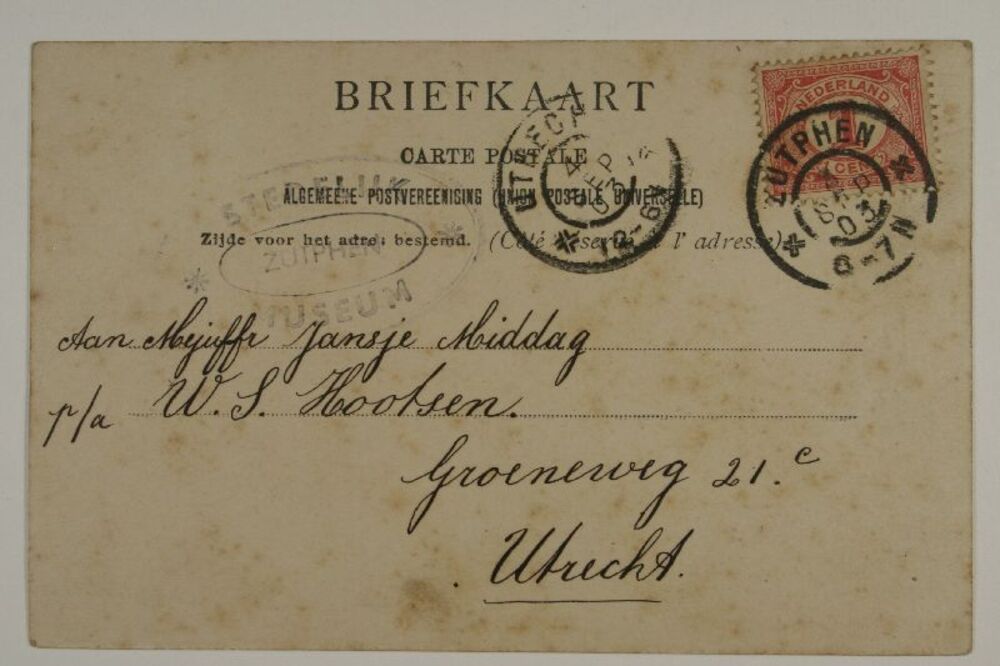 BRIEFKAART
CARTE POSTALE
ALGEMEENE POSTVEREENIGING (UNION POSTALE UNIVERSELLE)
Zijde voor het adres bestemd. (Côté réservé à l'adresse)
NEDERLAND
1 CENT
ZUTPHEN
SEP
03
6-7N
UTRECHT
4 SEP
03
STEDELIJK
ZUTPHEN
MUSEUM
Aan Mejuffr Jansje Middag
p/a W. S. Hootsen.
Groeneweg 21.c
Utrecht.